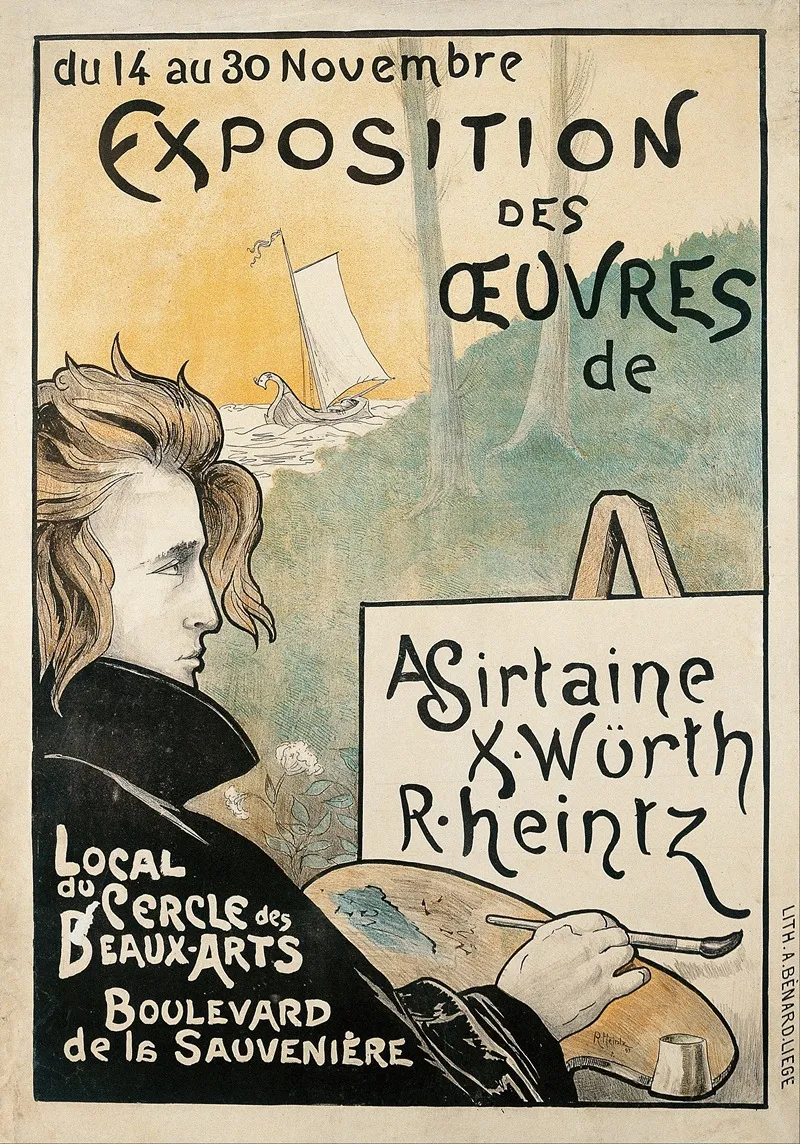 du 14 au 30 Novembre
EXPOSITION
DES
ŒUVRES
de
A Sirtaine
X. Würth
R. heintz
LOCAL
du CERCLE des
BEAUX-ARTS
BOULEVARD
de la SAUVENIÈRE
R. Heintz
LITH. A. BÉNARD. LIEGE